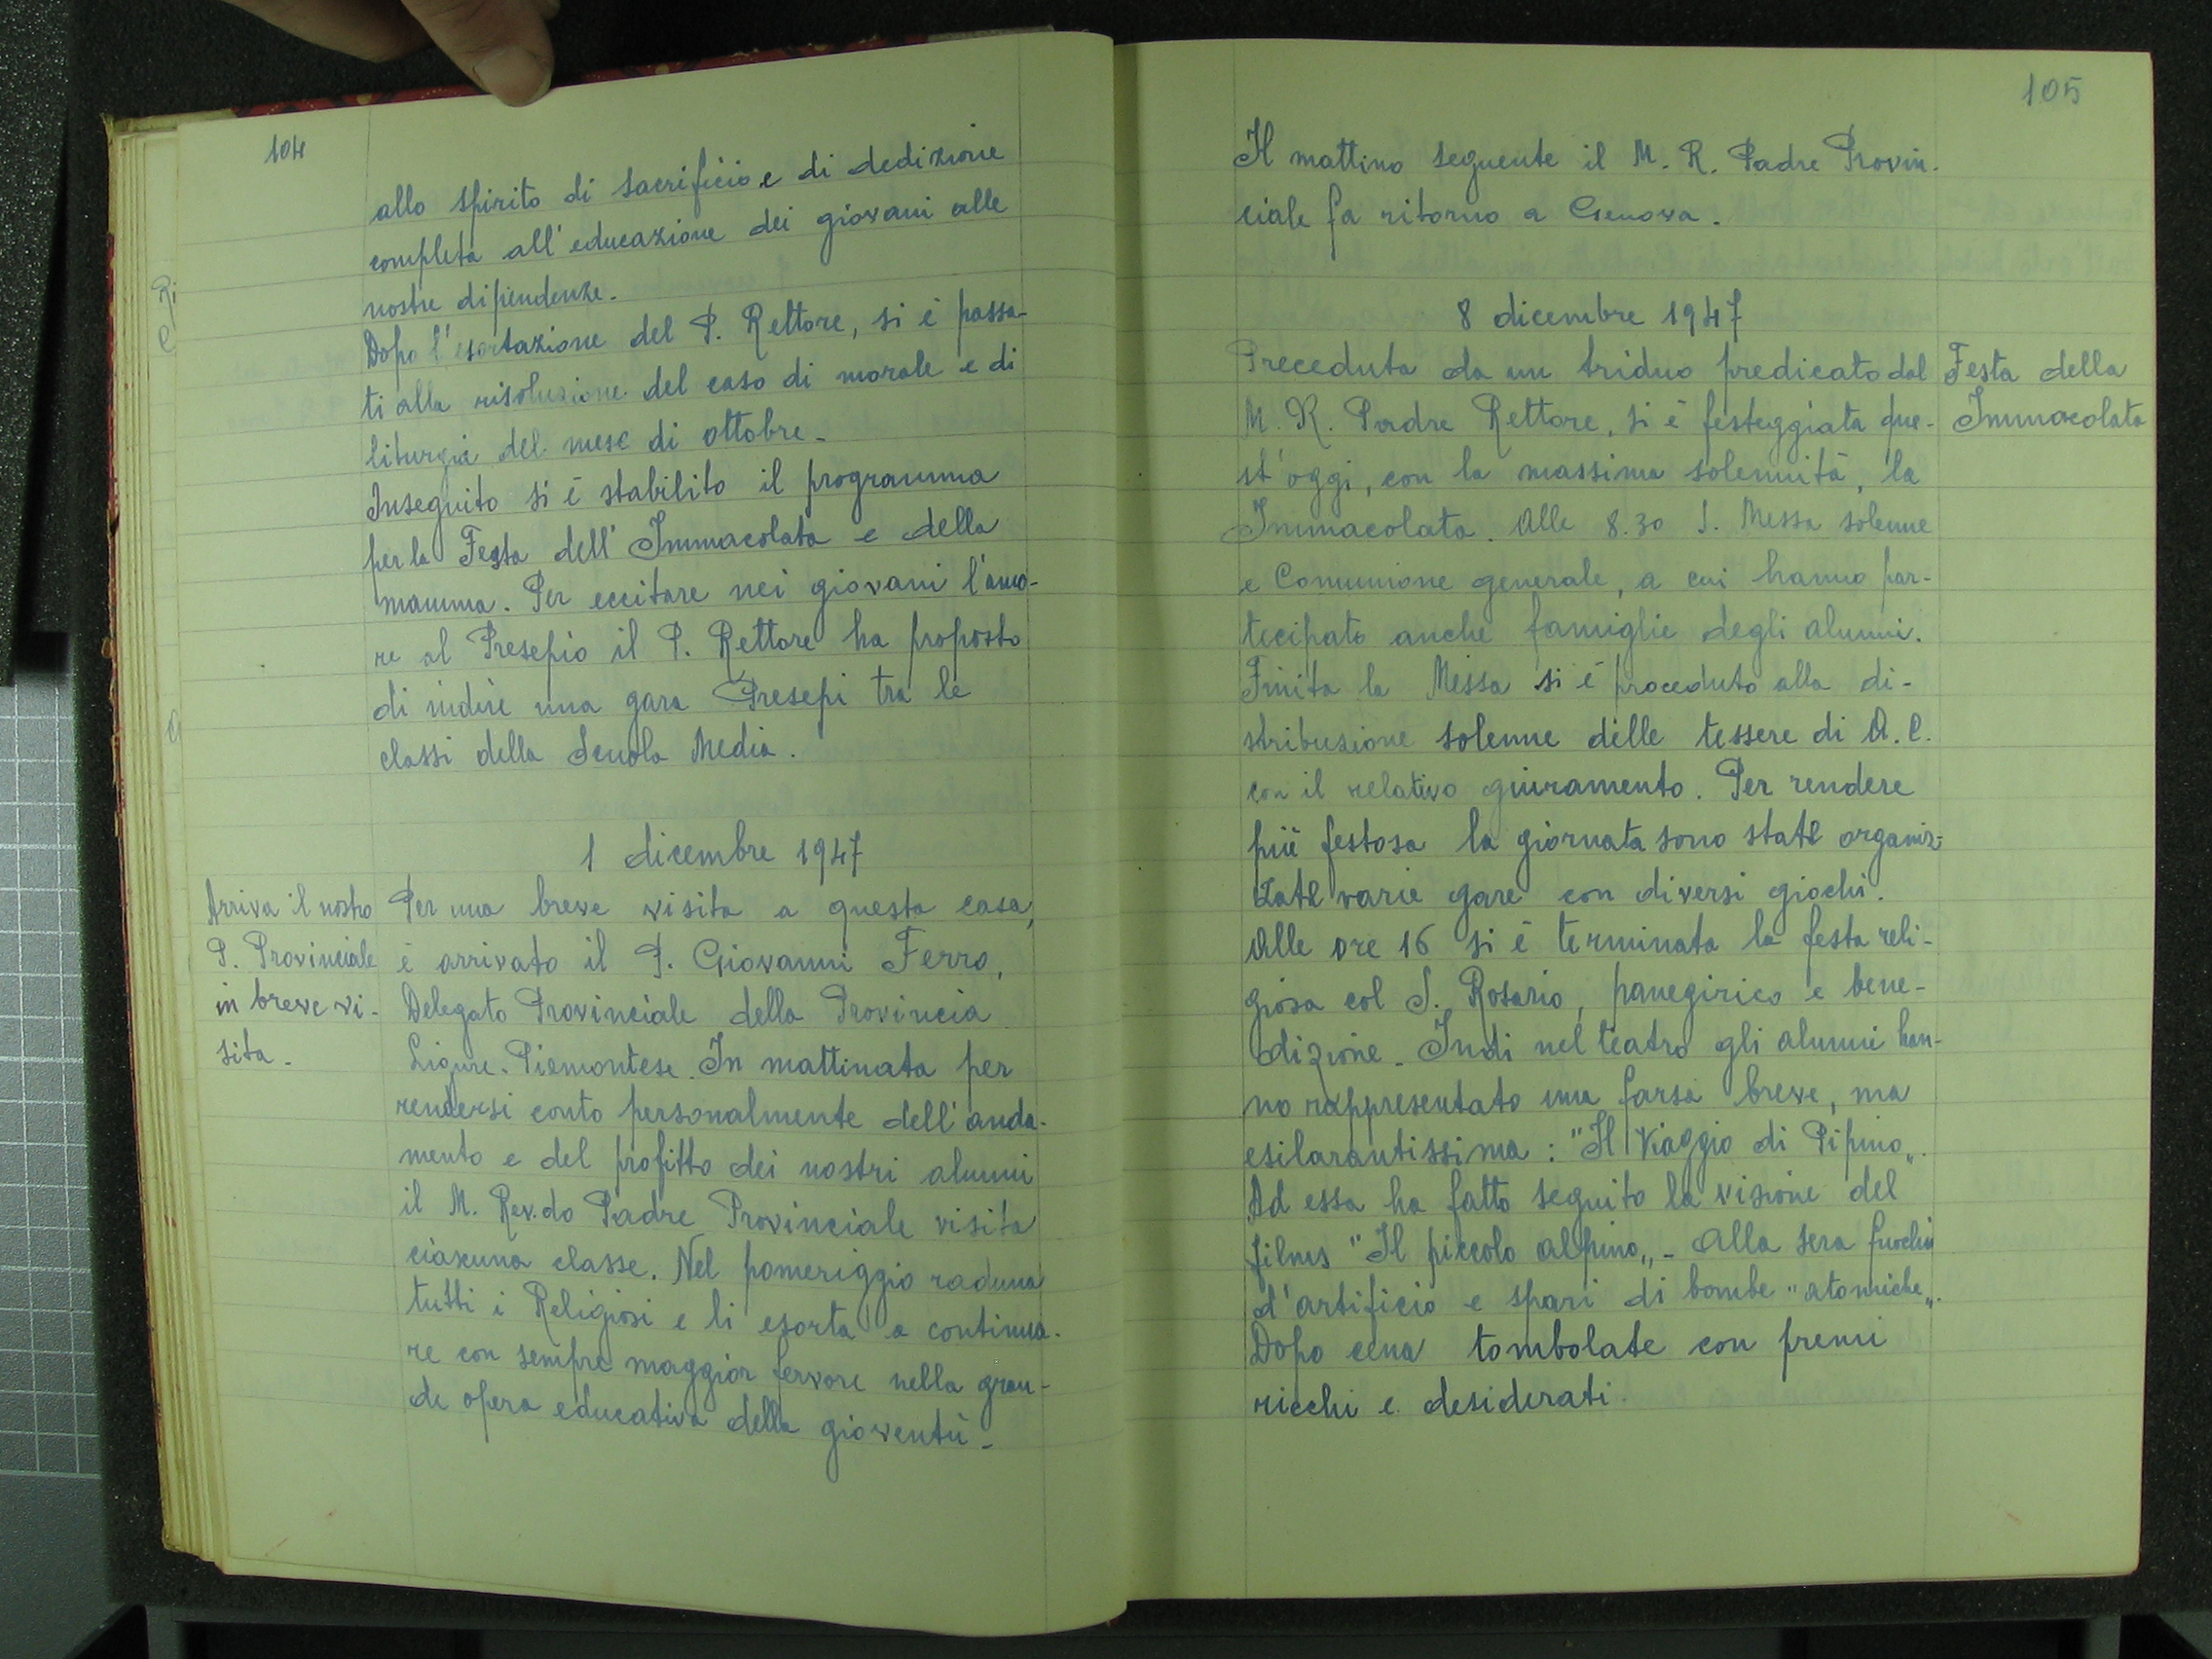 104
allo spirito di sacrificio e di dedizione
completa all'educazione dei giovani alle
nostre dipendenze.
Dopo l'esortazione del P. Rettore, si è passa-
ti alla risoluzione del caso di morale e di
liturgia del mese di ottobre.
Inseguito si è stabilito il programma
per la Festa dell'Immacolata e della
mamma. Per eccitare nei giovani l'amo-
re al Presepio il P. Rettore ha proposto
di indire una gara Presepi tra le
classi della Scuola Media.
1 dicembre 1947
Arriva il nostro
P. Provinciale
in breve vi-
sita.
Per una breve visita a questa casa,
è arrivato il P. Giovanni Ferro,
Delegato Provinciale della Provincia
Ligure-Piemontese. In mattinata per
rendersi conto personalmente dell'anda-
mento e del profitto dei nostri alunni
il M. Rev.do Padre Provinciale visita
ciascuna classe. Nel pomeriggio raduna
tutti i Religiosi e li esorta a continua-
re con sempre maggior fervore nella gran-
de opera educativa della gioventù.
105
Il mattino seguente il M. R. Padre Provin-
ciale fa ritorno a Genova.
8 dicembre 1947
Festa della
Immacolata
Preceduta da un triduo predicato dal
M. R. Padre Rettore, si è festeggiata que-
st'oggi, con la massima solennità, la
Immacolata. Alle 8.30 S. Messa solenne
e Comunione generale, a cui hanno par-
tecipato anche famiglie degli alunni.
Finita la Messa si è proceduto alla di-
stribuzione solenne delle tessere di A.C.
con il relativo giuramento. Per rendere
più festosa la giornata sono state organiz-
zate varie gare con diversi giochi.
Alle ore 16 si è terminata la festa reli-
giosa col S. Rosario, panegirico e bene-
dizione. Indi nel teatro gli alunni han-
no rappresentato una farsa breve, ma
esilarantissima: "Il Viaggio di Pipino".
Ad essa ha fatto seguito la visione del
films "Il piccolo alpino". Alla sera fuochi
d'artificio e spari di bombe "atomiche".
Dopo cena tombolate con premi
ricchi e desiderati.